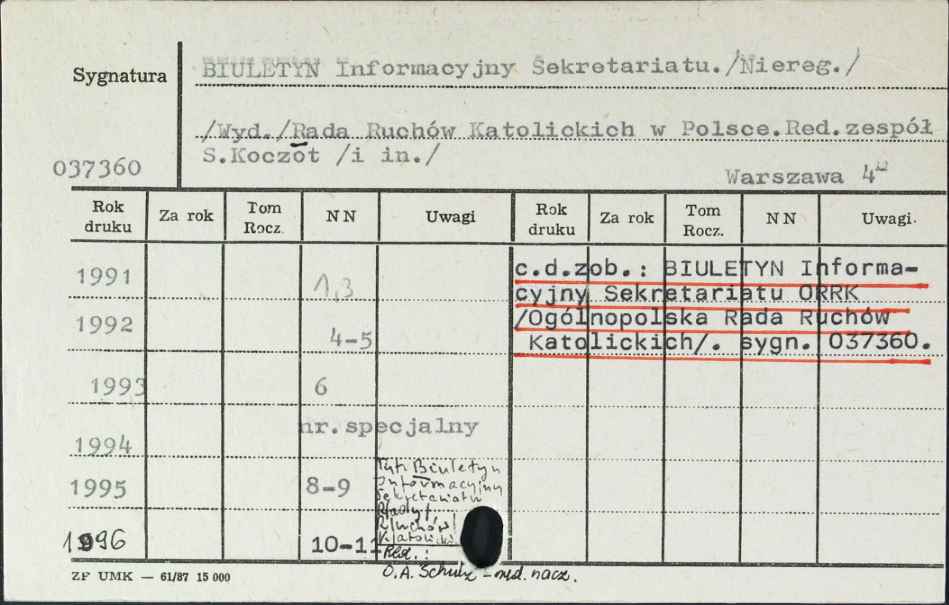 Sygnatura
BIULETYN Informacyjny Sekretariatu./Niereg./
/Wyd./Rada Ruchów Katolickich w Polsce.Red.zespół
S.Koczot /i in./
037360
Warszawa 4°
Rok druku Za rok Tom Rocz. NN Uwagi Rok druku Za rok Tom Rocz. NN Uwagi.
1991 1,3
1992 4-5
1993 6
nr.specjalny
1994
1995 8-9
1996 10-11
Tyt: Biuletyn
Informacyjny
Sekretariatu
Rady
Ruchów
Katolicki
Red.:
O.A. Schulz - red. nacz.
c.d.zob.: BIULETYN Informa-
cyjny Sekretariatu ORRK
/Ogólnopolska Rada Ruchów
Katolickich/. sygn. 037360.
ZP UMK — 61/87 15 000